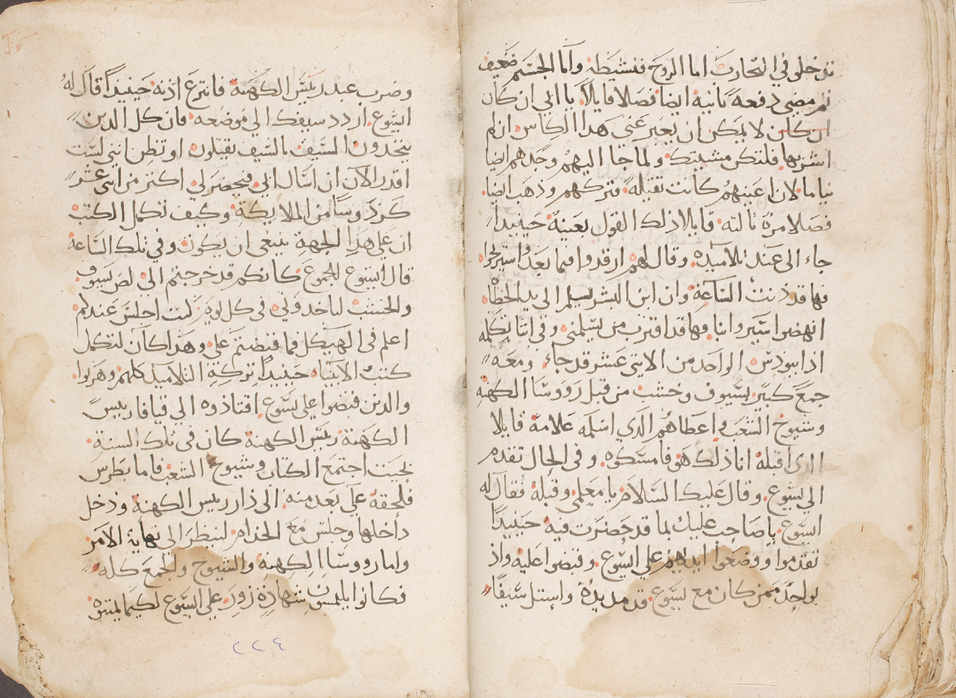 تدخلو في التجارب اما الروح فنشيطة واما الجسم ضعيف
ثم مضى دفعه ثانيه ايضا فصلا قايلا يا ابي ان كان
لا يمكن ان يعبر عني هدا الكاس ان لم
اشربها فلتكن مشيتك ولما جا اليهم وجدهم ايضا
نياما لان اعينهم كانت ثقيلة فتركهم وذهب ايضا
فصلا مرة ثالثه قايلا ذلك القول بعينة حينيدا
جاء الى عند تلاميده وقال لهم ارقدوا فيما بعد واستريحوا
فها قد دنت الساعة وان ابن البشر يسلم الى يد الخطاه
انهضوا سيروا بنا فها قد اقترب من يسلمني وفي اثنا تكلمه
اذا يودس الواحد من الاثني عشر قد جاء ومعه
جمع كثير بسيوف وخشب من قبل رووسا الكهنه
وشيوخ الشعب اعطاهم الدي اسلمه علامة قايلا
الدي اقبله انا ذلك هو فامسكوه وفي الحال تقدم
الي يسوع وقال عليك السلام يا معلمي وقبله فقال له
اليسوع يا صاحب عليك بما قد حضرت فيه حينيدا
تقدموا ووضعوا ايديهم علي اليسوع وقبضوا عليه واذ
بواحد ممن كان مع يسوع قد مد يده واستل سيفا
وضرب عبد رييس الكهنة فانتزع اذنه حينيدا قال له
اليسوع اردد سيفك الي موضعه فان كل الدين
ياخدون السيف بالسيف يقتلون او تظن انني لست
اقدر الان ان اسال ابي فيحضر لي اكثر من اثني عشر
كردوسا من الملايكة وكيف تكمل الكتب
ان علي هدا الجهة ينبغي ان يكون وفي تلك الساعة
قال اليسوع للجموع كانكم قد خرجتم الى لص بسيوف
والخشب لتاخدوني في كل يوم كنت اجلس عندكم
اعلم في الهيكل فما قبضتم علي وهدا كان لتكمل
كتب الانبياء حينيدا تركة التلاميد كلهم وهربوا
والدين قبضوا علي يسوع اقتادوه الي قيافا رييس
الكهنة رييس الكهنة كان في تلك السنه
بحيث اجتمع الكتاب وشيوخ الشعب فاما بطرس
فلحقه علي بعد منه الى دار رييس الكهنة ودخل
داخلها وجلس مع الخدام لينظر الى نهاية الامر
واما رووسا الكهنة والشيوخ والجمع كله
فكانوا يلتمسون شهادة زور علي اليسوع لكيما يميتوه
٢٢٤